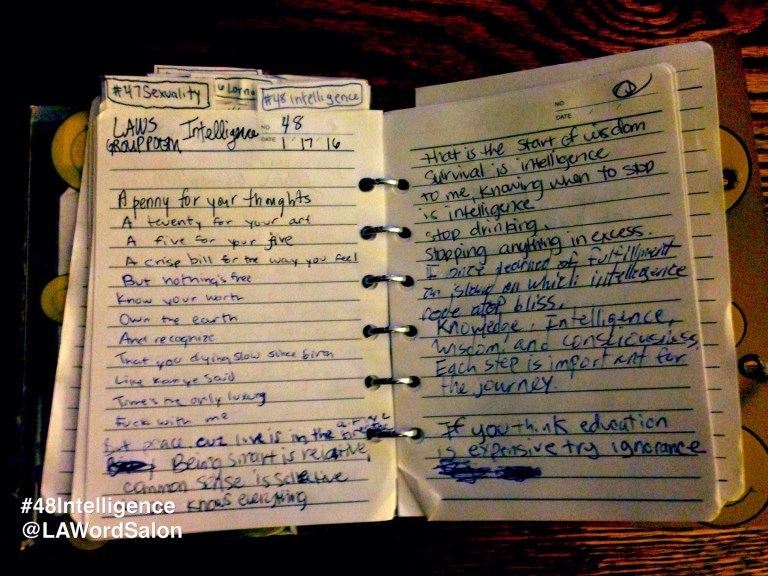 #47Sexuality
#48 Intelligence
LAWS
GROUP POEM Intelligence NO 48
DATE 1 17 16
A penny for your thoughts
A twenty for your art
A five for your jive
A crisp bill for the way you feel
But nothing's free
Know your worth
Own the earth
And recognize
That you dying slow since birth
Like Kanye said
Time's the only luxury
Fuck with me
place our love is in the
Being smart is relative,
common sense is selective
knows everything
NO
DATE
That is the start of wisdom
Survival is intelligence
To me, knowing when to stop
is intelligence
Stop drinking,
Stopping anything in excess.
I once learned of fulfillment
An island on which intelligence
rode atop bliss.
Knowledge, Intelligence,
Wisdom, and consciousness.
Each step is important for
the journey.
If you think education
is expensive try ignorance
#48Intelligence
@LAWordSalon